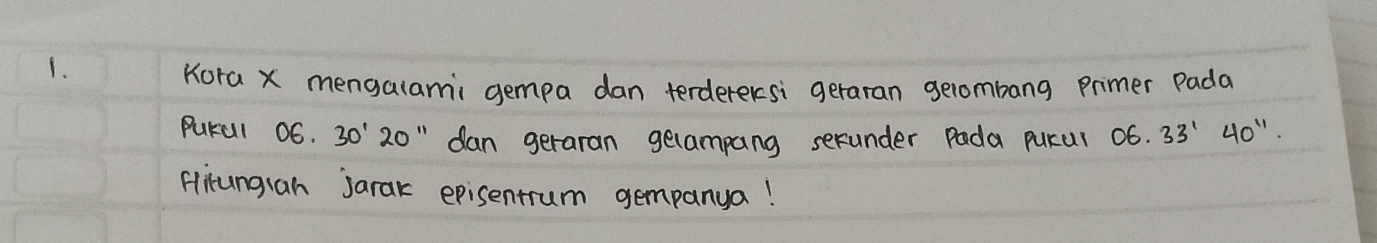 1. Kota X mengalami gempa dan terdeteksi getaran gelombang Primer Pada
Pukul 06. 30' 20" dan getaran gelampang sekunder Pada pukul 06. 33' 40".
Hitunglah jarak episentrum gempanya!